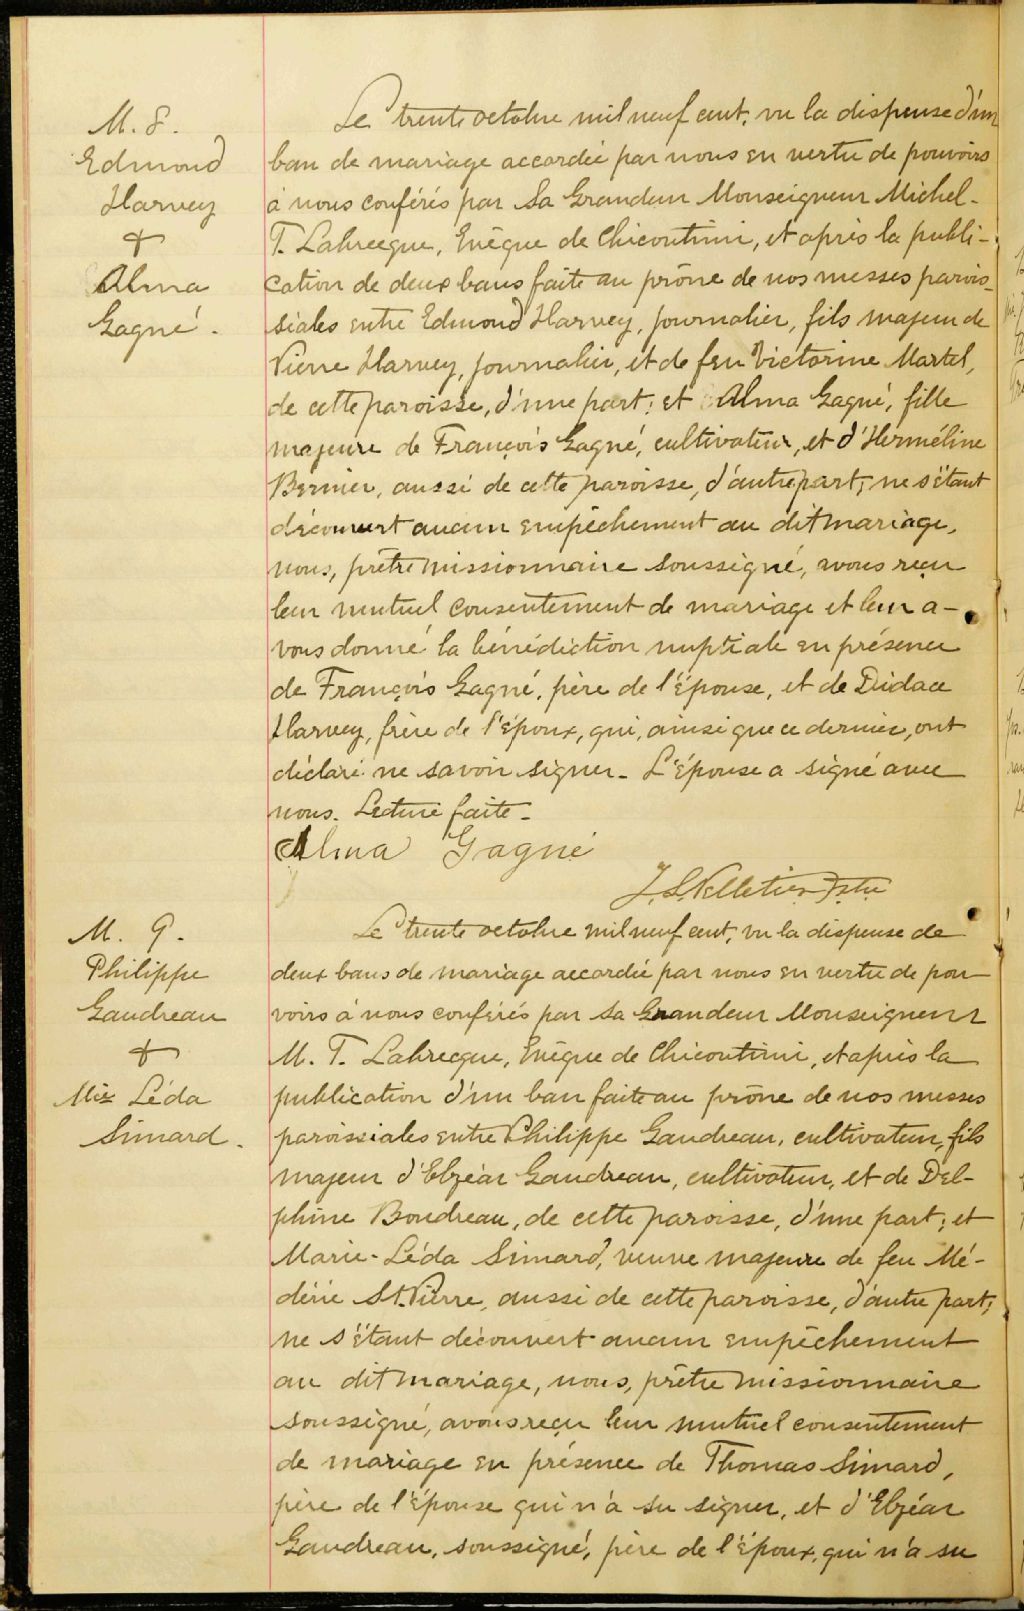 M. 8.
Edmond
Harvey
+
Alma
Gagné.
Le trente octobre mil neuf cent, vu la dispense d'un
ban de mariage accordée par nous en vertu de pouvoirs
à nous conférés par Sa Grandeur Monseigneur Michel-
T. Labrecque, Evêque de Chicoutimi, et après la publi-
cation de deux bans faite au prône de nos messes parois-
siales entre Edmond Harvey, journalier, fils majeur de
Pierre Harvey, journalier, et de feu Victorine Martel,
de cette paroisse, d'une part; et Alma Gagné, fille
majeure de François Gagné, cultivateur, et d'Herméline
Bernier, aussi de cette paroisse, d'autre part; ne s'étant
découvert aucun empêchement au dit mariage,
nous, prêtre missionnaire soussigné, avons reçu
leur mutuel consentement de mariage et leur a-
vons donné la bénédiction nuptiale en présence
de François Gagné, père de l'épouse, et de Didace
Harvey, frère de l'Époux, qui, ainsi que ce dernier, ont
déclaré ne savoir signer. L'Épouse a signé avec
nous. Lecture faite.
Alma Gagné
J. S. Pelletier Ptre
M. 9.
Philippe
Gaudreau
+
Mie Léda
Simard.
Le trente octobre mil neuf cent, vu la dispense de
deux bans de mariage accordée par nous en vertu de pou-
voirs à nous conférés par Sa Grandeur Monseigneur
M. T. Labrecque, Evêque de Chicoutimi, et après la
publication d'un ban faite au prône de nos messes
paroissiales entre Philippe Gaudreau, cultivateur, fils
majeur d'Elzéar Gaudreau, cultivateur, et de Del-
phine Boudreau, de cette paroisse, d'une part; et
Marie-Léda Simard, veuve majeure de feu Mé-
dérie St. Pierre, aussi de cette paroisse, d'autre part;
ne s'étant découvert aucun empêchement
au dit mariage, nous, prêtre missionnaire
soussigné, avons reçu leur mutuel consentement
de mariage en présence de Thomas Simard,
père de l'épouse qui n'a su signer, et d'Elzéar
Gaudreau, soussigné, père de l'époux, qui n'a su